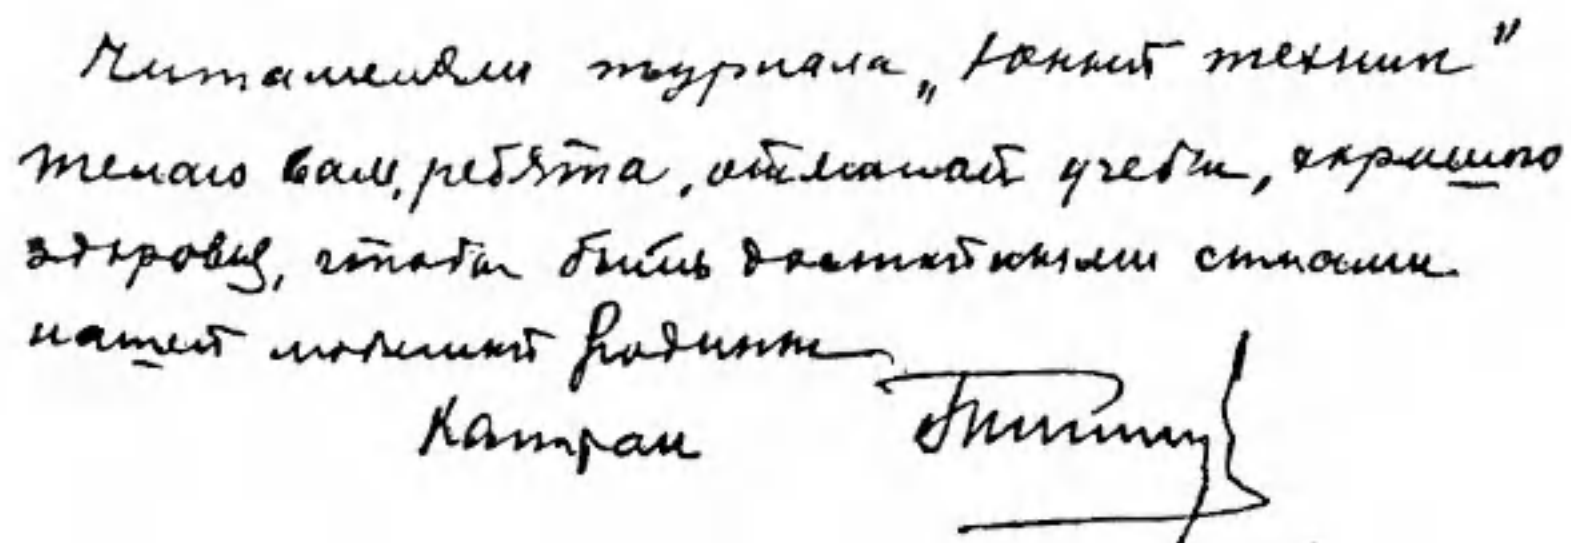 Читателям журнала „Юный техник"
Желаю вам, ребята, отличной учебы, хорошего
здоровья, чтобы быть достойными сынами
нашей любимой Родины